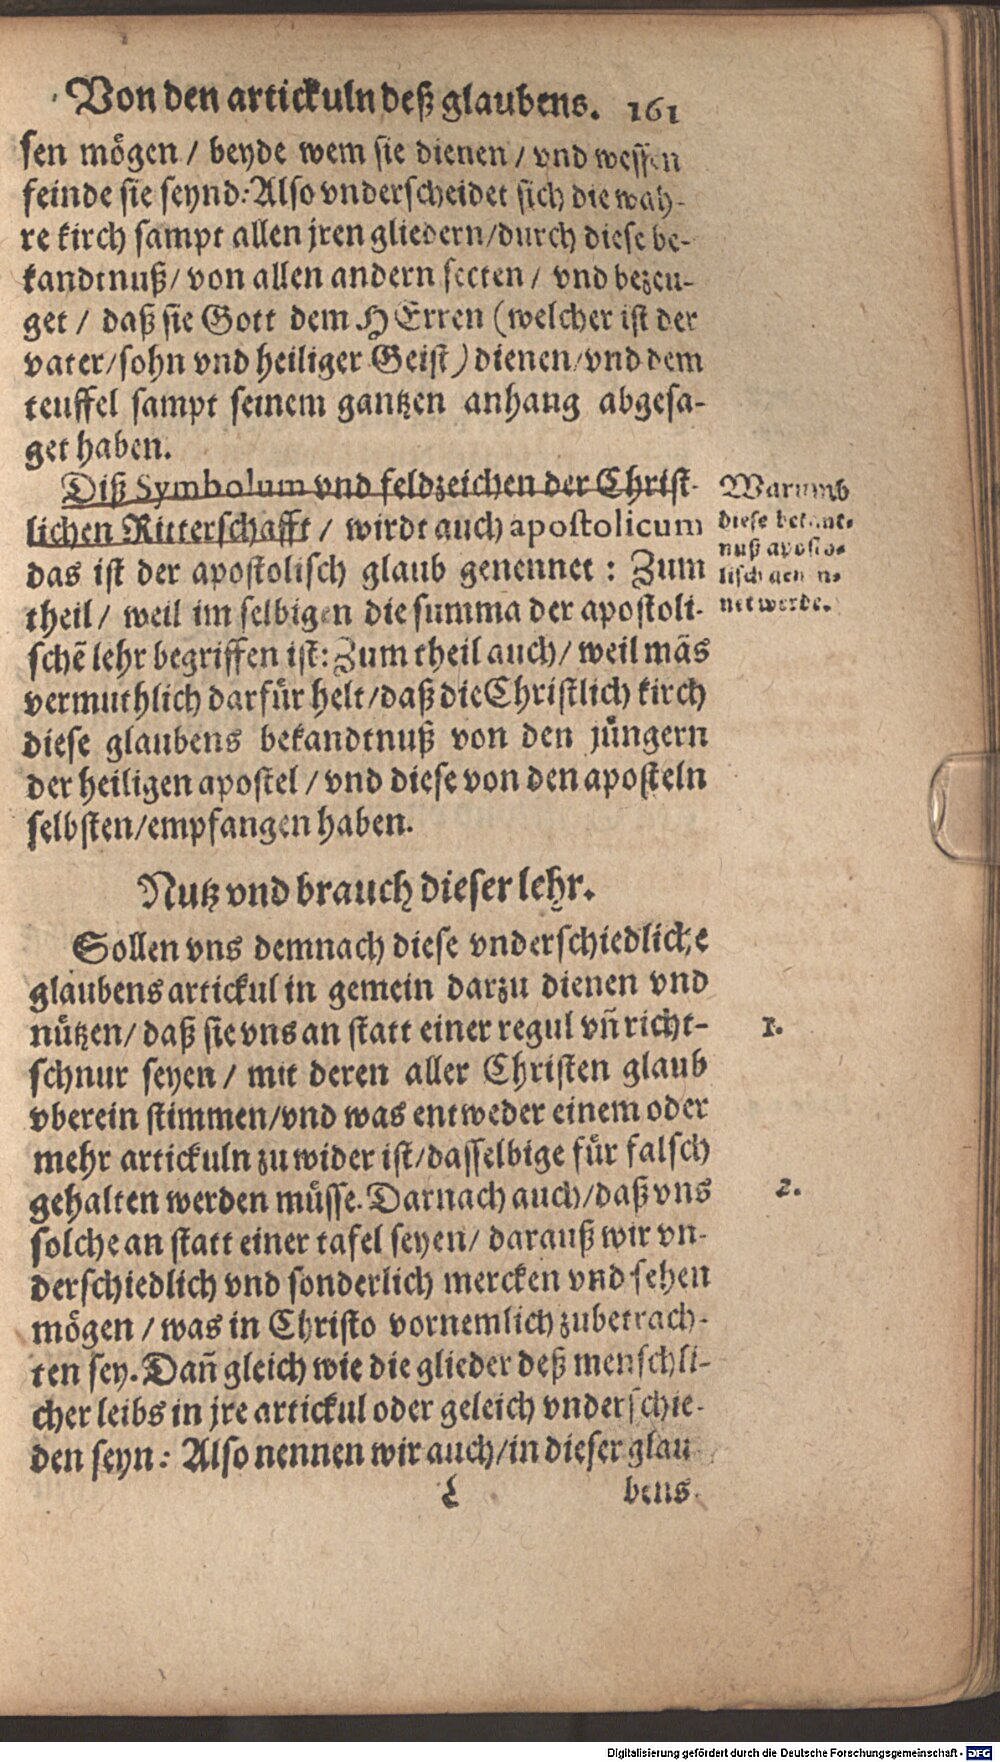 Von den artickuln deß glaubens. 161
sen mögen / beyde wem sie dienen / vnd wessen
feinde sie seynd: Also vnderscheidet sich die wah-
re kirch sampt allen jren gliedern / durch diese be-
kandtnuß / von allen andern secten / vnd bezeu-
get / daß sie Gott dem HErren (welcher ist der
vater / sohn vnd heiliger Geist) dienen / vnd dem
teuffel sampt seinem gantzen anhang abgesa-
get haben.
Diß Symbolum vnd feldzeichen der Christ-
lichen Ritterschafft / wirdt auch apostolicum
das ist der apostolisch glaub genennet : Zum
theil / weil im selbigen die summa der apostoli-
schē lehr begriffen ist: Zum theil auch / weil mãs
vermuthlich darfür helt / daß die Christlich kirch
diese glaubens bekandtnuß von den jüngern
der heiligen apostel / vnd diese von den aposteln
selbsten / empfangen haben.
Warumb
diese bekant-
nuß aposto-
lisch gen n-
net werde.
Nutz vnd brauch dieser lehr.
Sollen vns demnach diese vnderschiedliche
glaubens artickul in gemein darzu dienen vnd
nützen / daß sie vns an statt einer regul vñ richt-
schnur seyen / mit deren aller Christen glaub
vberein stimmen / vnd was entweder einem oder
mehr artickuln zu wider ist / dasselbige für falsch
gehalten werden müsse. Darnach auch / daß vns
solche an statt einer tafel seyen / darauß wir vn-
derschiedlich vnd sonderlich mercken vnd sehen
mögen / was in Christo vornemlich zubetrach-
ten sey. Dañ gleich wie die glieder deß menschli-
cher leibs in jre artickul oder geleich vnderschie-
den seyn : Also nennen wir auch / in dieser glau
1.
2.
L bens
Digitalisierung gefördert durch die Deutsche Forschungsgemeinschaft - DFG